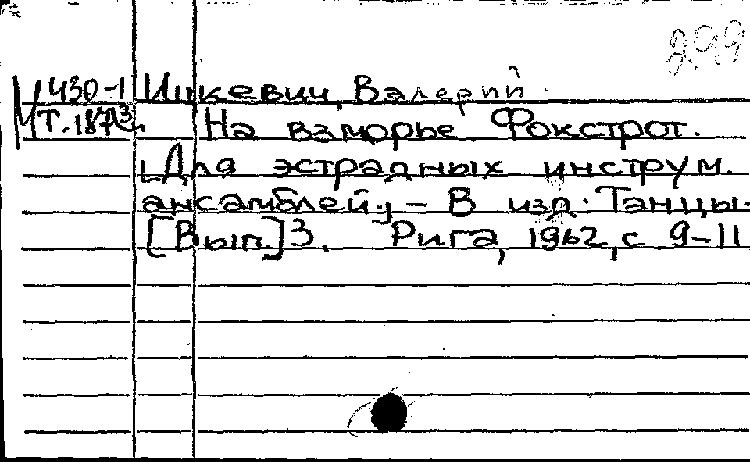 2.99
М 430-1 Ицкевич, Валерий
Т.187А3 На взморье Фокстрот.
[Для эстрадных инструм.
ансамблей.] – В изд. Танцы.
[Вып.] 3. Рига, 1962, с 9–11